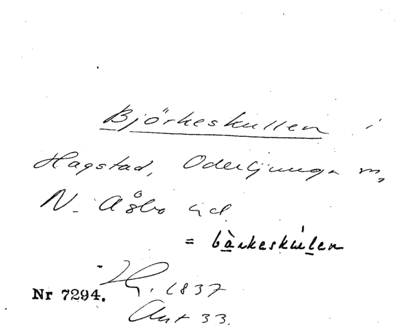 Björkeskullen i
Hagstad, Oderljunga sn,
N. Åsbo hd.
= bàrkeskúlen
Nr 7294. 1837
Ant 33.